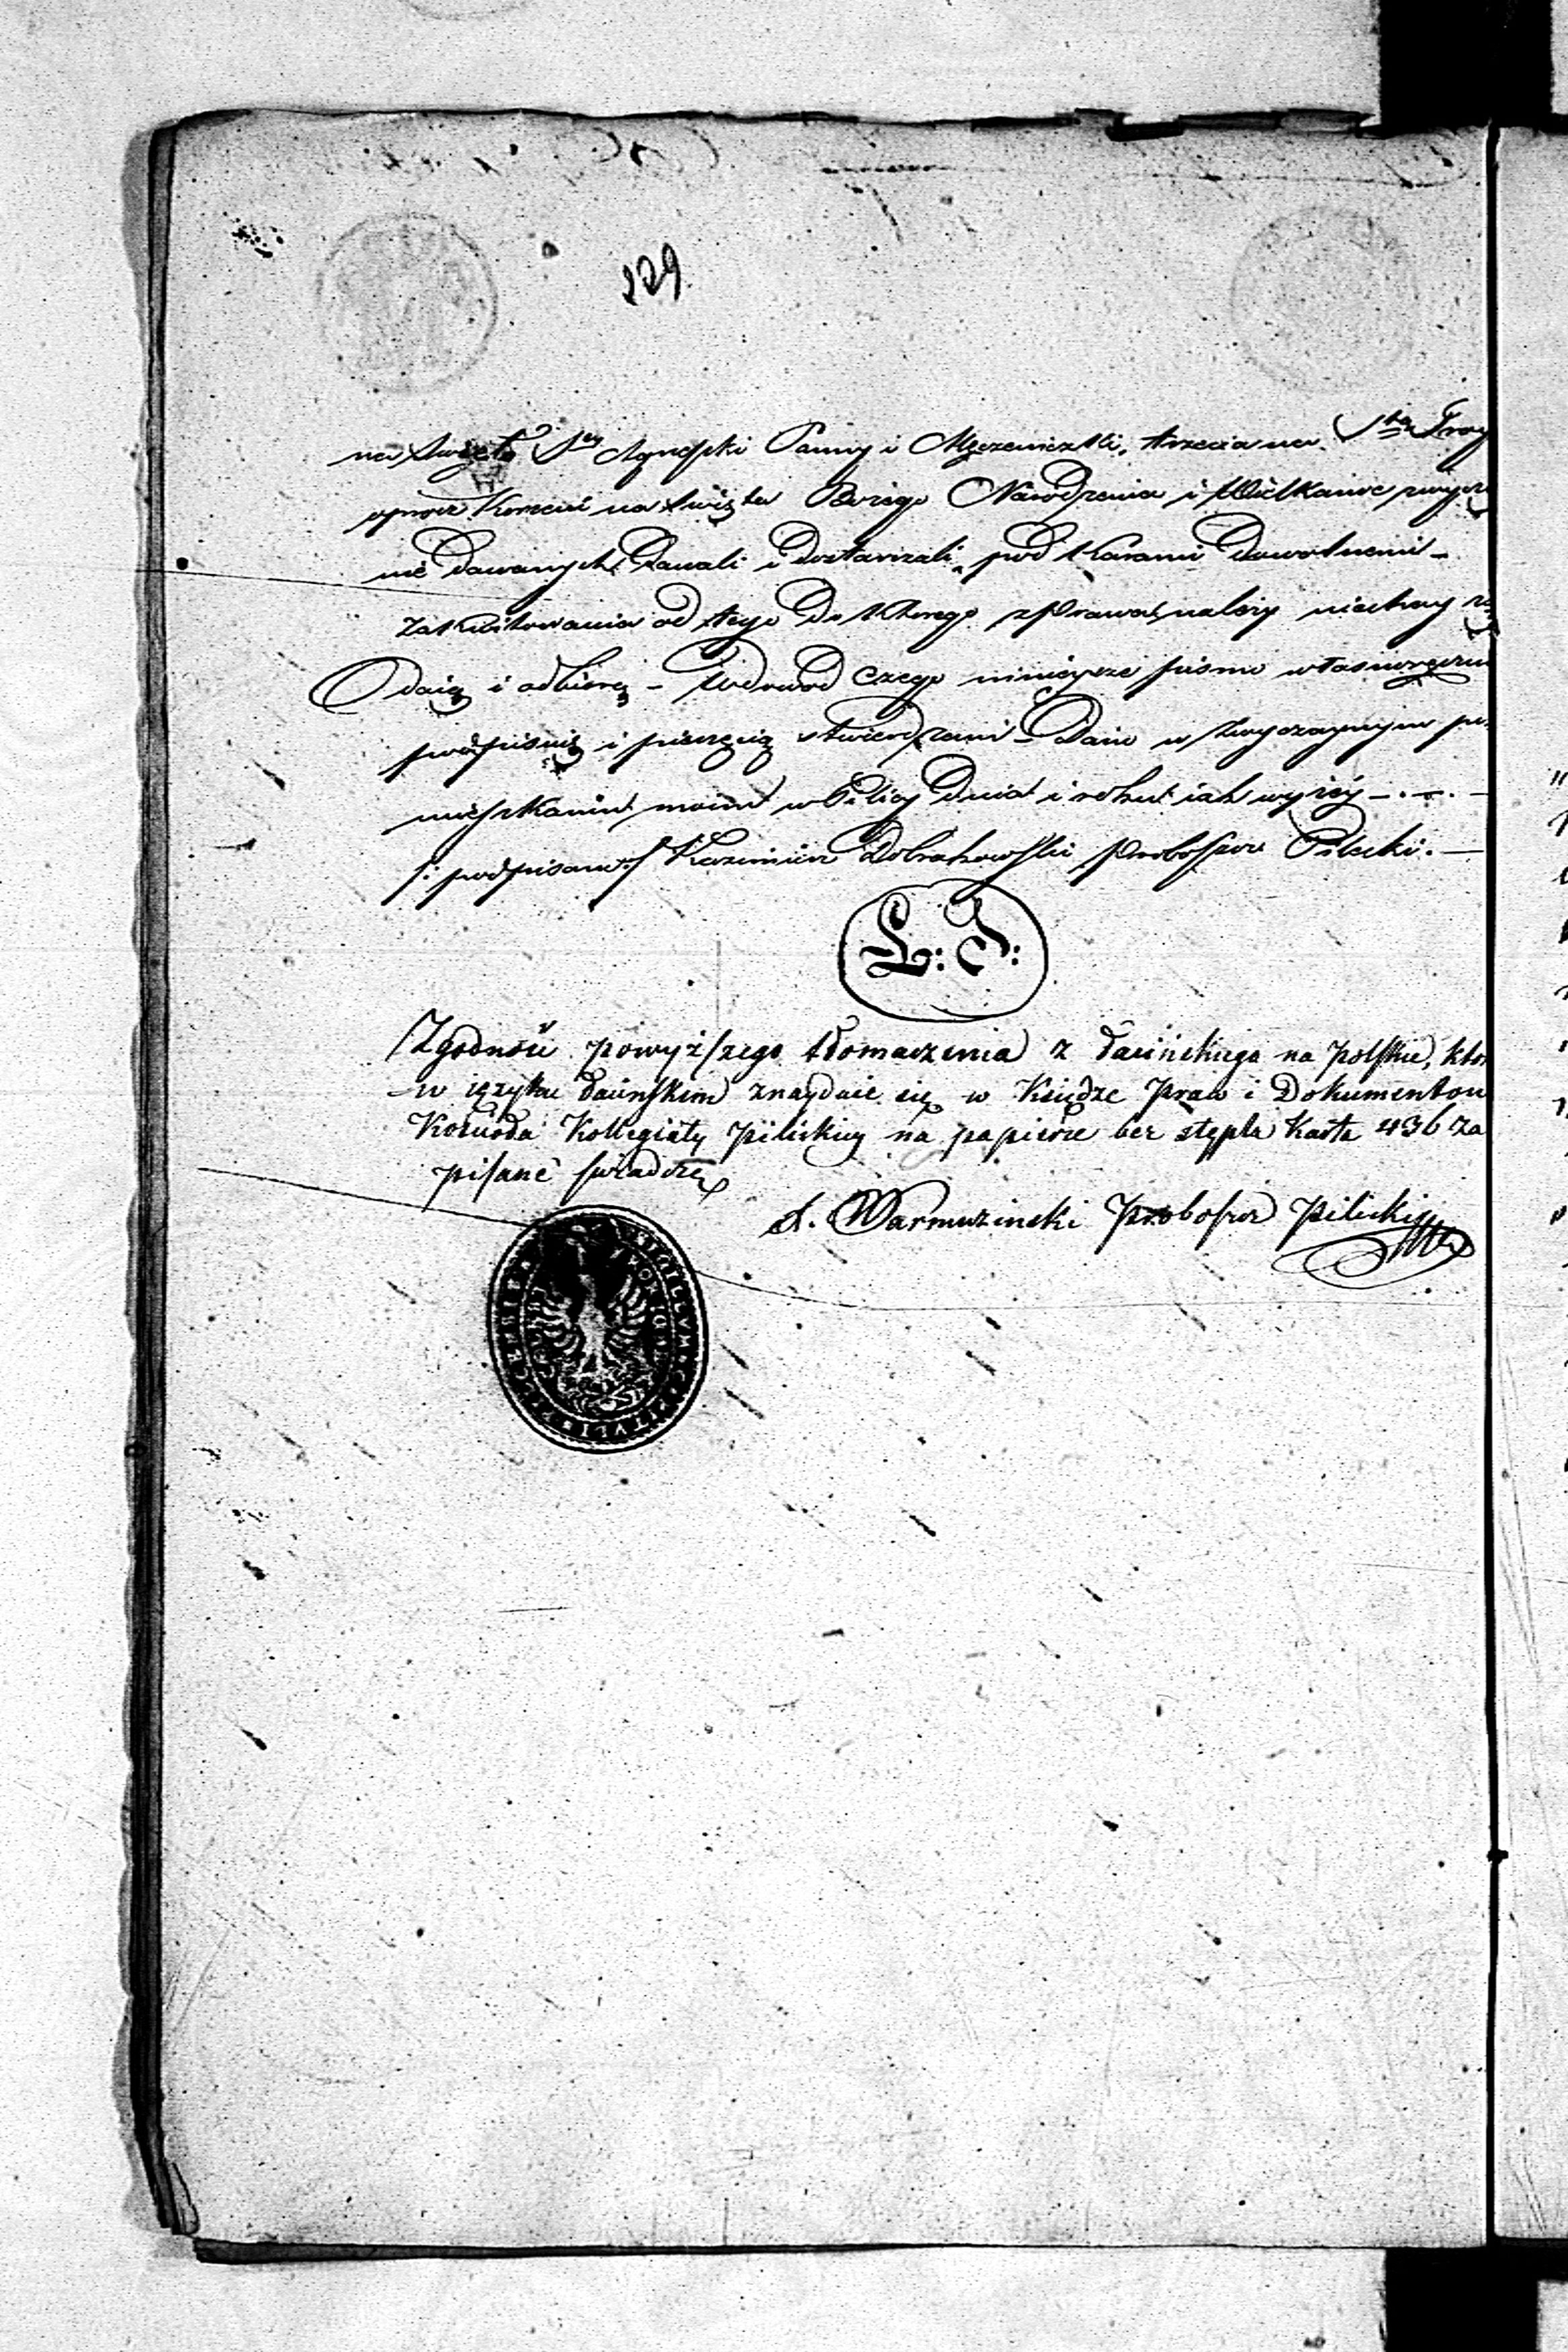 229.
na Swięto S<sup>ey</sup> Agnyszki Panny i Męczeniczki, trzecia na S<sup>tą</sup> Troy
oprócz Korzeni na święta Bożego Narodzenia i Wielkanoc zwycz
nie dawanych dawali i dostarczali, pod karami dowolnemi –
Zakwitowania od tego do którego z Prawa należy niechay
Odaią i odbierą – Wdowód czego ninieysze pismo własnoręczn
podpisuię i pieczęcią stwierdzam – Dan w zwyczaynym po
mieszkaniu moim w Pilicy Dnia i roku iak wyżéy –.–.–
/: podpisano :/ Kazimierz Dobrakowski Proboszcz Pilecki. –
L: S:
Zgodność powyższego tłomaczenia z Łacińskiego na Polskie, któr
w ięzyku Łacińskim znayduie się w Księdze Praw i Dokumentów
Kościoła Kollegiaty Pilickiey na papierze bez stępla Karta 436 za
pisane świadczę
A. Warmuzinski Proboszcz Pilicki
SIGILLUM